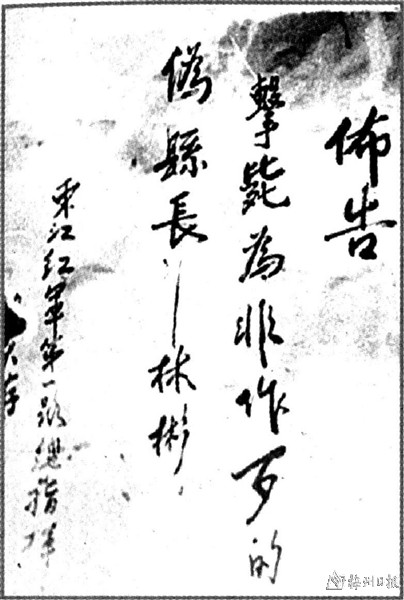 佈告
擊斃為非作歹的
偽縣長——林彬
東江紅軍第一路總指揮
大存
梅州日报